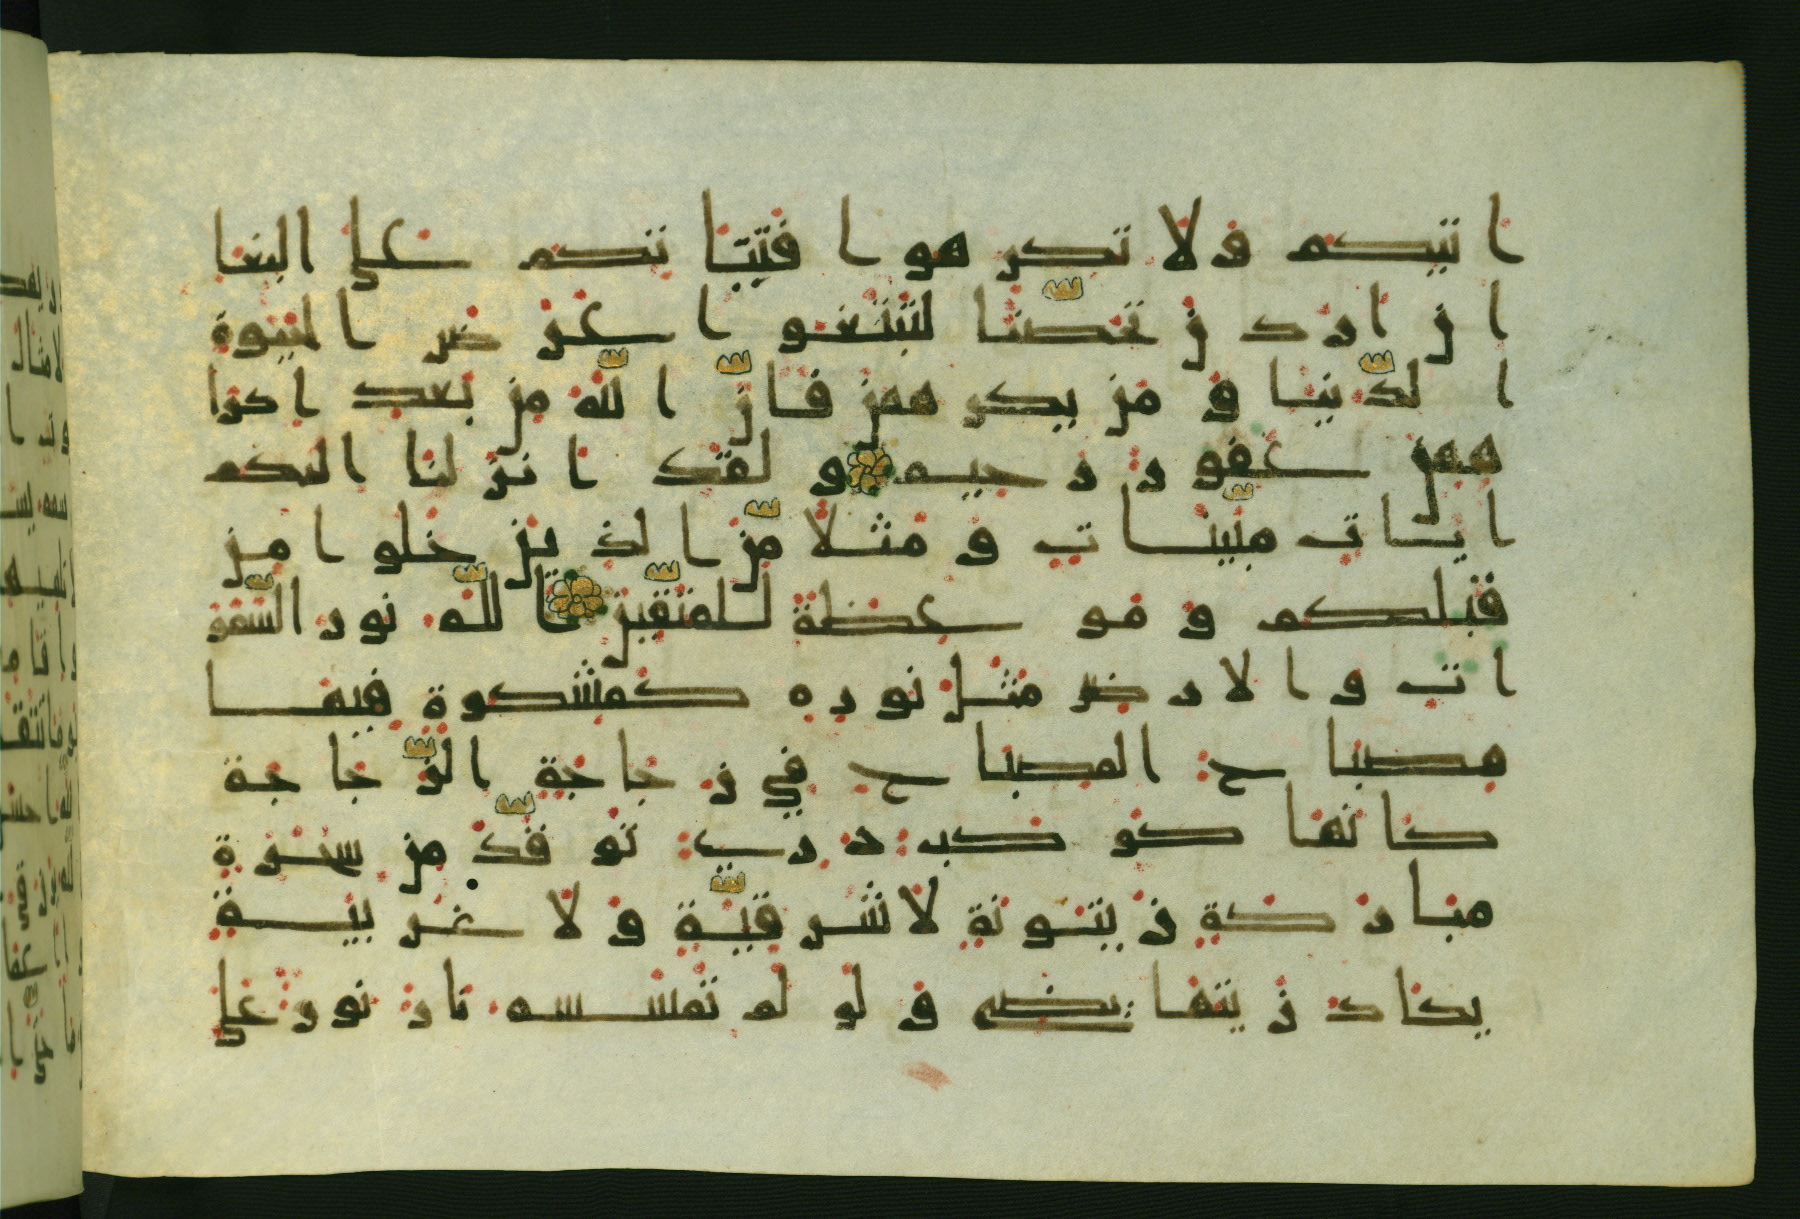 اتيكم ولا تكرهوا فتياتكم على البغا
ان اردن تحصنا لتبتغوا عرض الحيوة
الدنيا ومن يكرههن فانّ اللّه من بعد اكرا
ههن غفور رحيم ولقد انزلنا اليكم
ايات مبينات ومثلا مّن الذين خلوا من
قبلكم وموعظة للمتّقين اللّه نور السّمو
ات والارض مثل نوره كمشكوة فيها
مصباح المصباح في زجاجة الزّجاجة
كانها كوكب دري توقّد من شجرة
مباركة زيتونة لا شرقيّة ولا غربية
يكاد زيتها يضي ولو لم تمسسه نار نور على